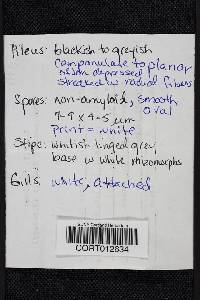 Pileus: blackish to greyish
campanulate to planar
depressed
streaked w radial fibers
Spores: non-amyloid, smooth
oval
7-9 x 4-5 µm
print = white
Stipe: whitish tinged grey
base w white rhizomorphs
Gills: white, attached
CORT012634